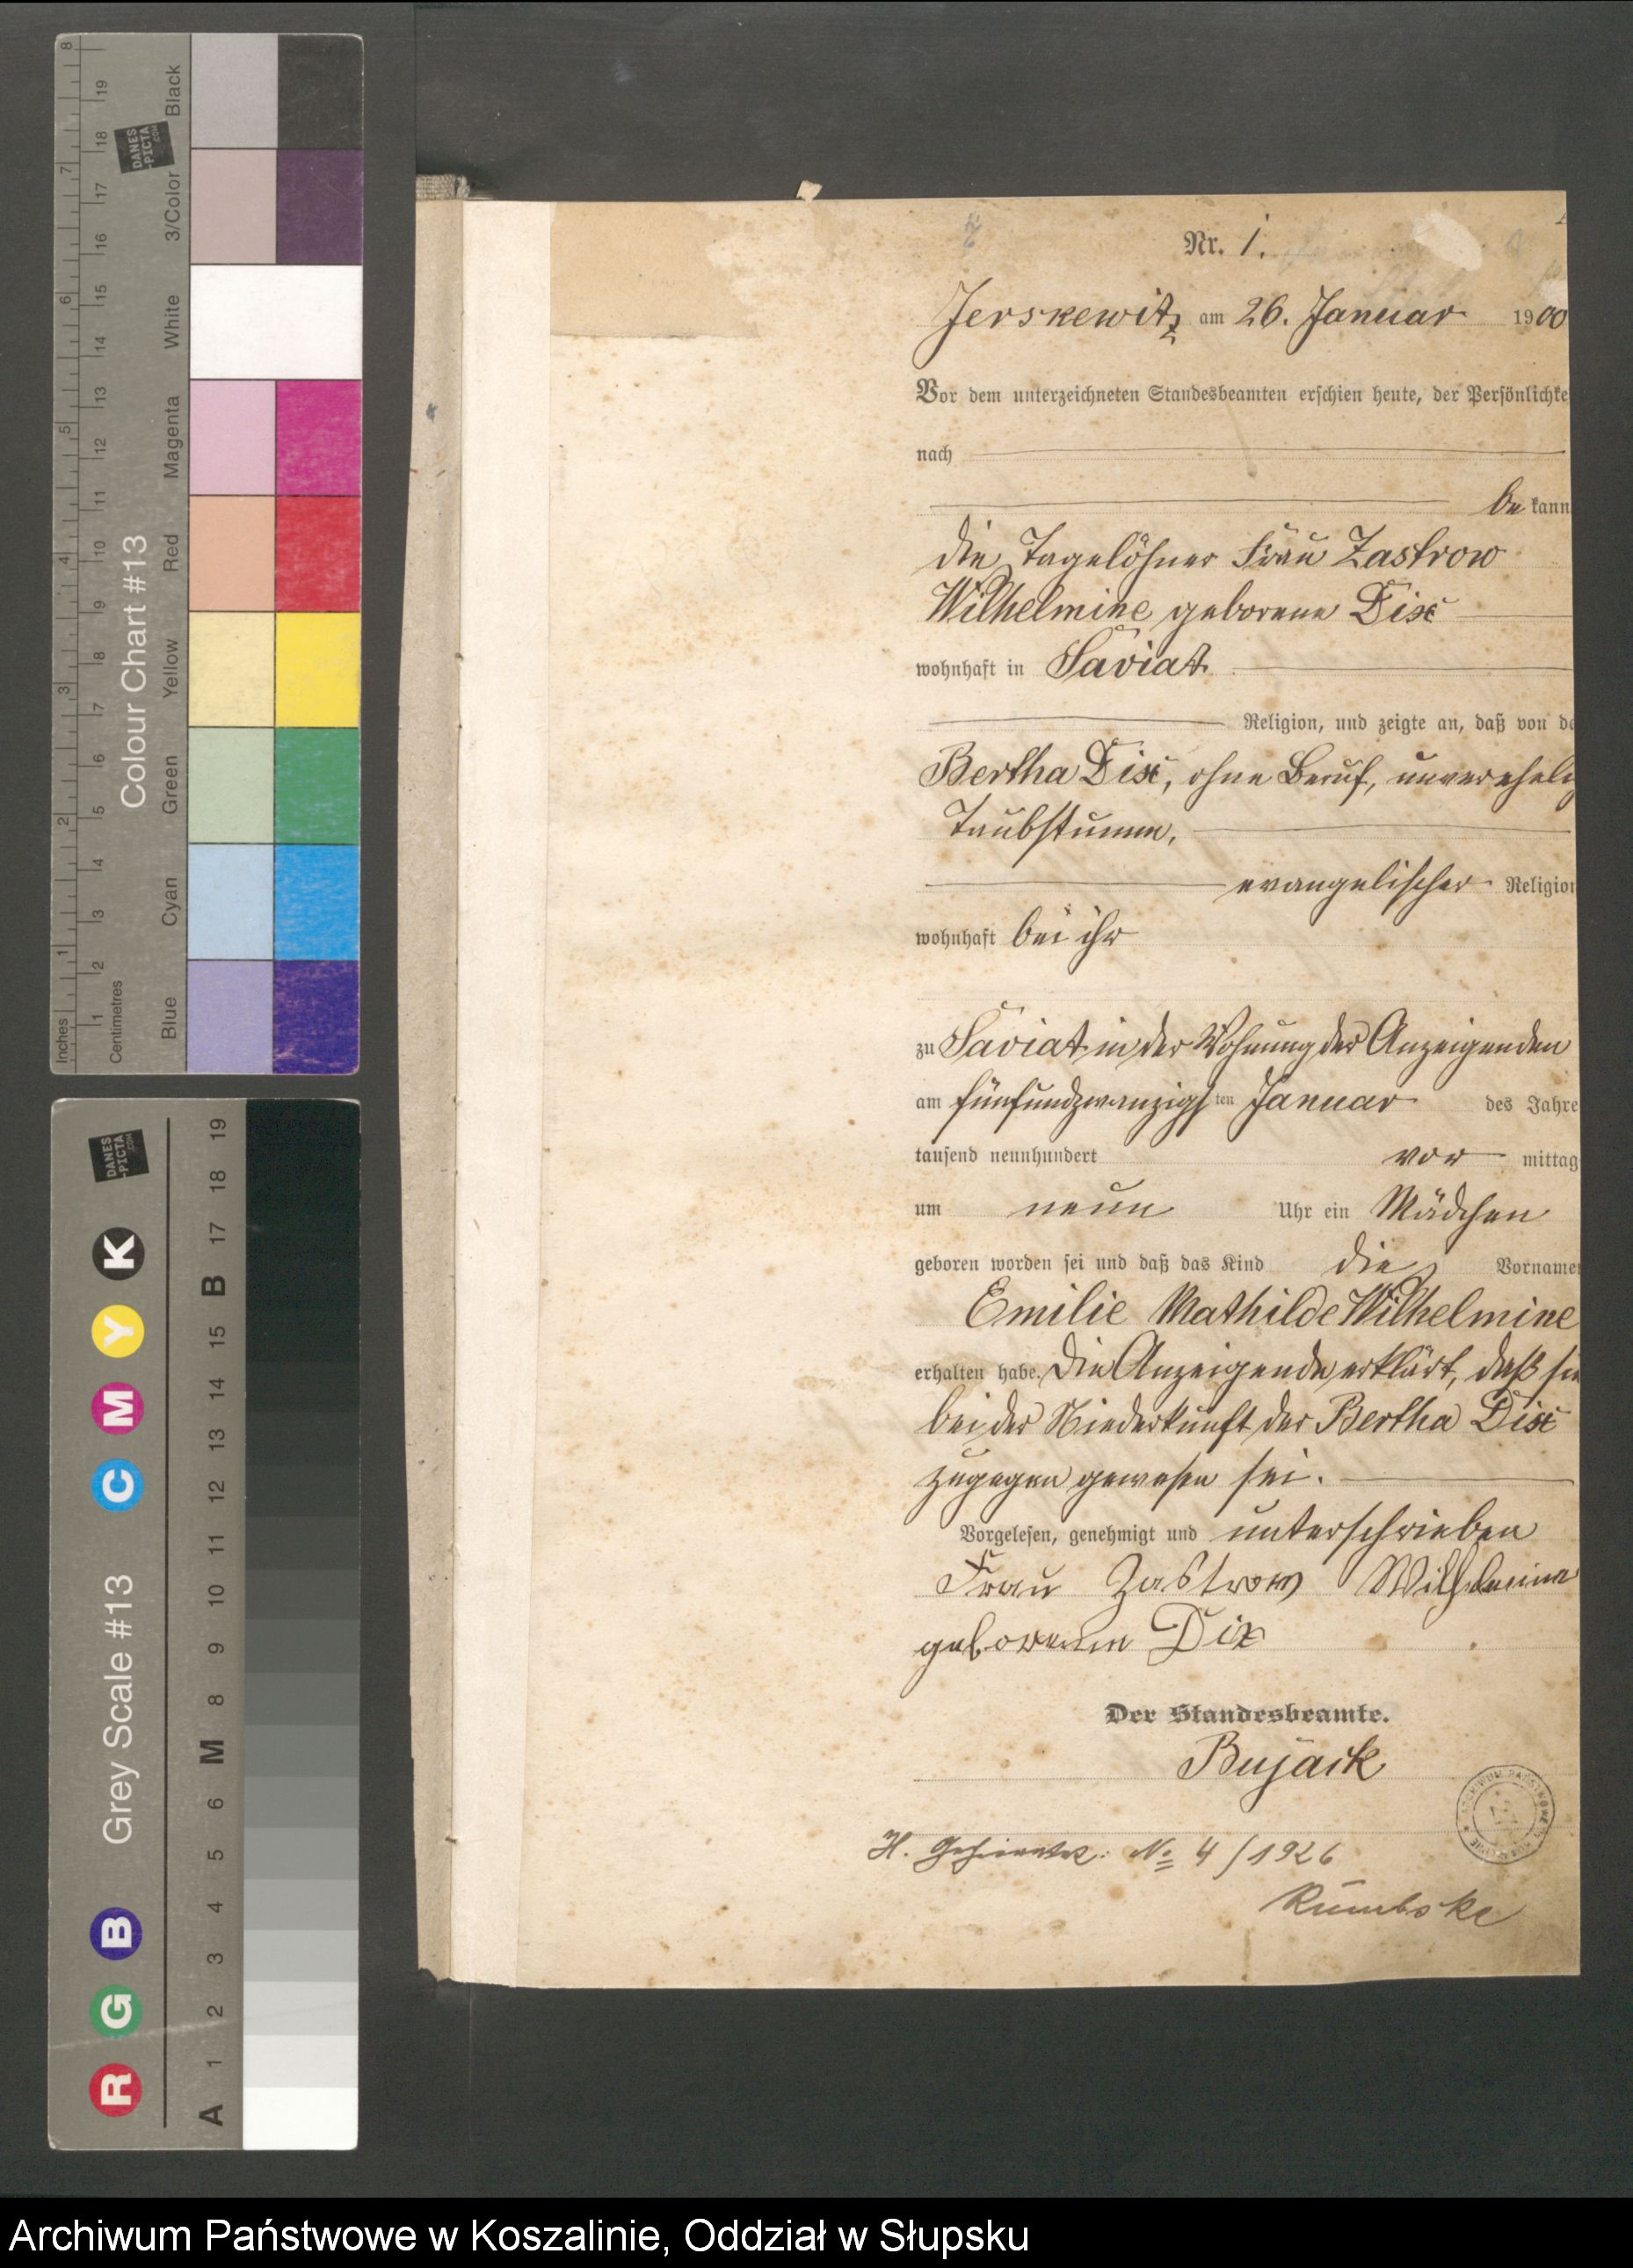 Nr. 1.
Jerskewitz am 26. Januar 1900
Vor dem unterzeichneten Standesbeamten erschien heute, der Persönlichke
nach
be kann
die Tagelöhner Frau Zastrow
Wilhelmine geborene Dix
wohnhaft in Saviat
Religion, und zeigte an, daß von de
Bertha Dix, ohne Beruf, unverehel
Taubstumm,
evangelischer Religion
wohnhaft bei ihr
zu Saviat in der Wohnung der Anzeigenden
am fünfundzwanzigsten Januar des Jahre
tausend neunhundert vor mittag
um neun Uhr ein Mädchen
geboren worden sei und daß das Kind die Vornamen
Emilie Mathilde Wilhelmine
erhalten habe. Die Anzeigende erklärt, daß sie
bei der Niederkunft der Bertha Dix
zugegen gewesen sei.
Vorgelesen, genehmigt und unterschrieben
Frau Zastrow Wilhelmine
geborene Dix
Der Standesbeamte.
Bujack
H. No 4/1926
Rumbske
Inches 1 2 3 4 5 6 7 8
Centimetres 1 2 3 4 5 6 7 8 9 10 11 12 13 14 15 16 17 18 19
Colour Chart #13
Blue Cyan Green Yellow Red Magenta White 3/Color Black
DANES
-PICTA
.COM
Grey Scale #13
R G B C M Y K
A 1 2 3 4 5 6 M 8 9 10 11 12 13 14 15 B 17 18 19
DANES
-PICTA
.COM
Archiwum Państwowe w Koszalinie, Oddział w Słupsku